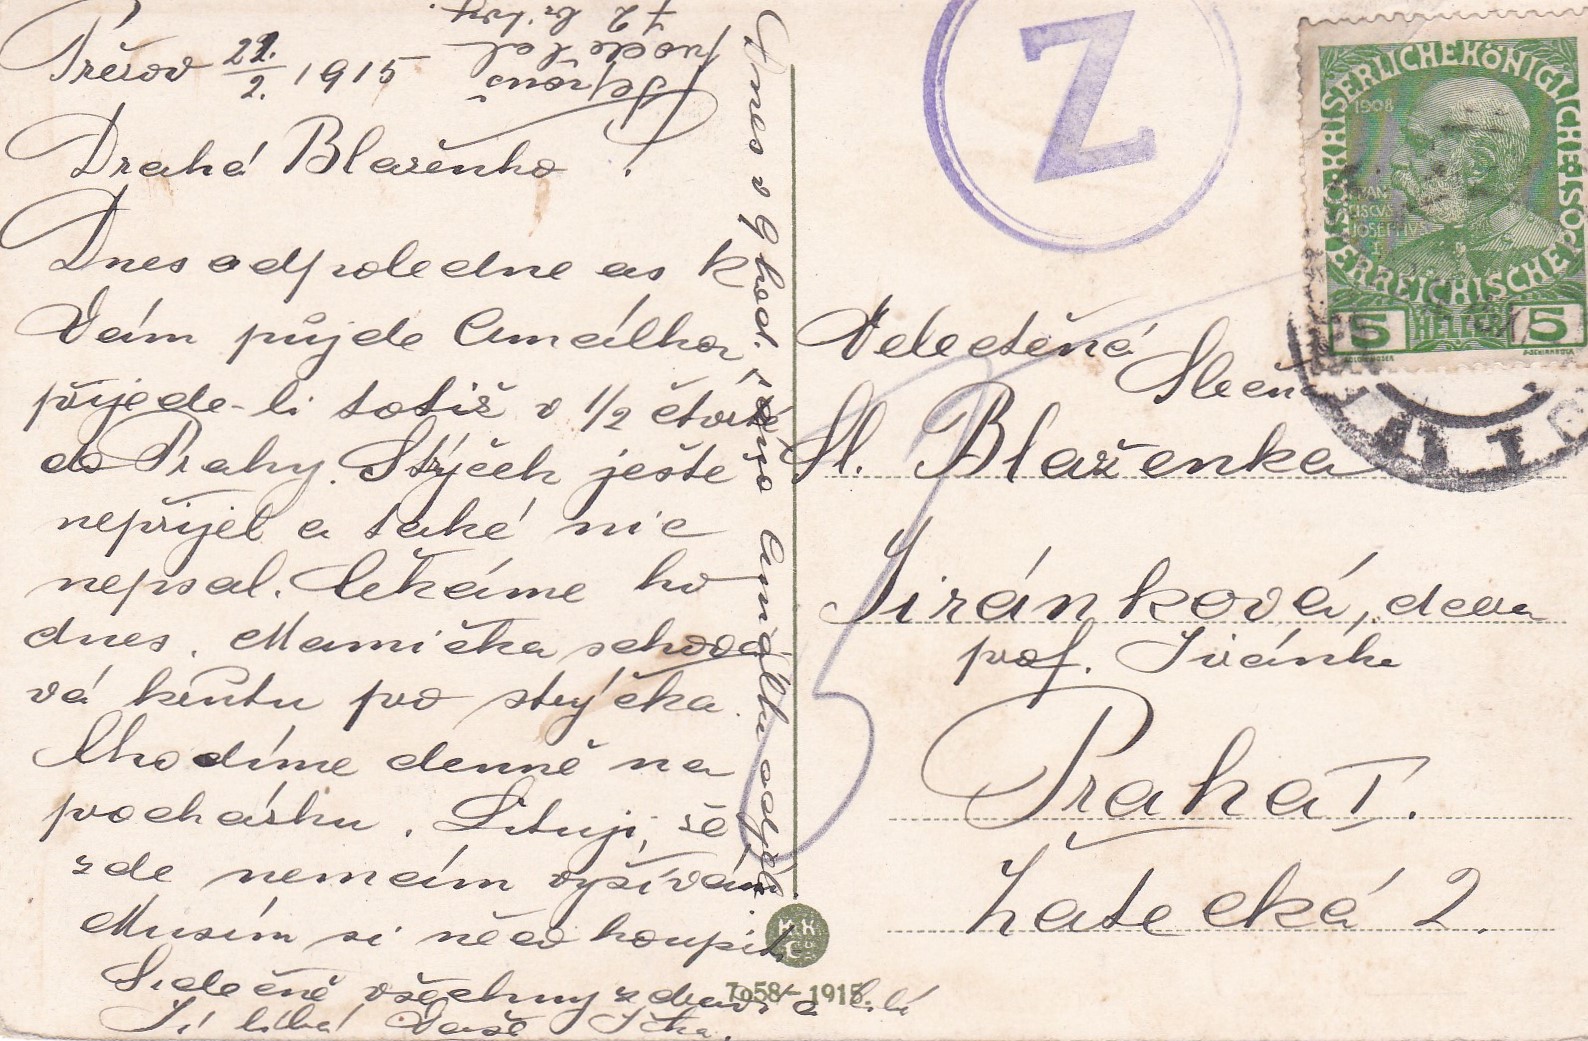 Přerov 22./2. 1915
Drahá Blaženko!
Dnes odpoledne as k
Vám půjde Amálka
přijede-li totiž v 1/2 čtvrté
do Prahy. Strýček ještě
nepřijel a také nic
nepsal. Čekáme ho
dnes. Mamička schová-
vá kýtu pro strýčka.
Chodíme denně na
procházku. Lituji, že
zde nemám vyšívání.
Musím si něco koupit.
Srdečně všechny zdraví a líbá
Ti líbá Vaše Ička.
Dnes v 9 hod. ráno Amálka odjela.
72
Z
KAISERLICHE KÖNIGLICHE ÖSTERREICHISCHE POST
1908
FRANCISCVS JOSEPHVS I.
5 HELLER 5
Veledctěná
Slečna
Sl. Blaženka
Jiránková, dcera
prof. Jiránka
Praha I.
Žatecká 2.
KK
Co
7058-1915.